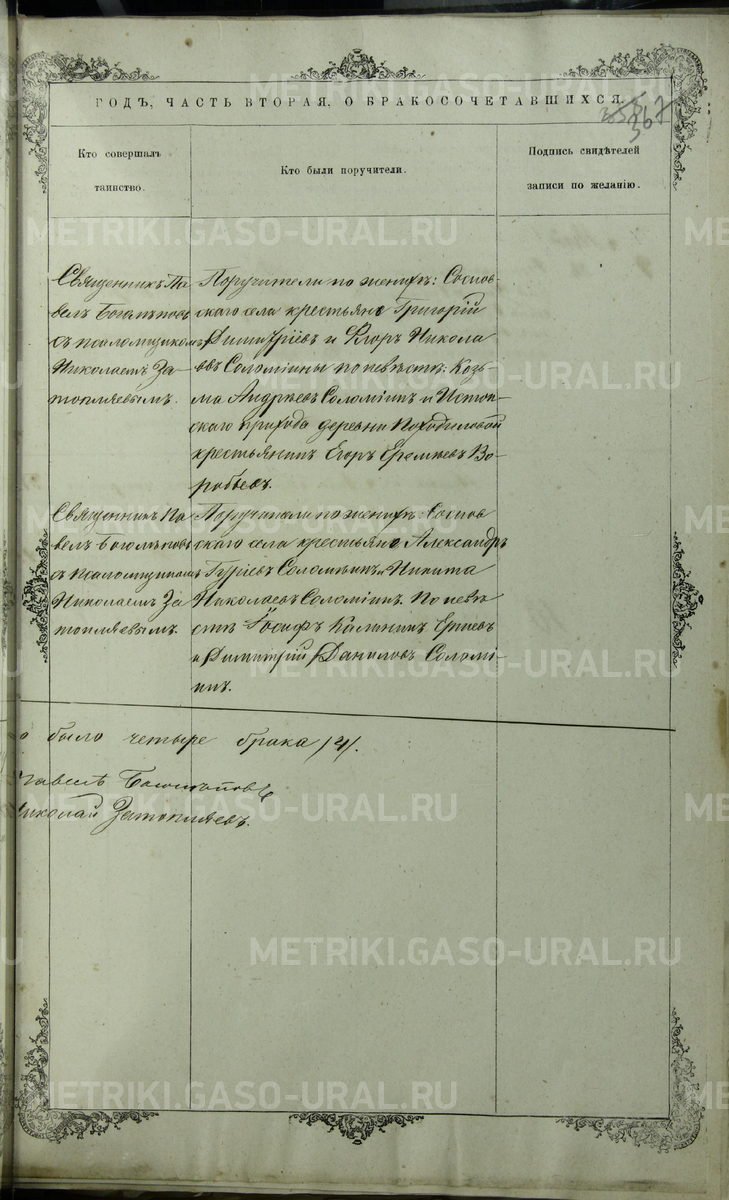 ГОДЪ, ЧАСТЬ ВТОРАЯ, О БРАКОСОЧЕТАВШИХСЯ.
367
Кто совершалъ
таинство.
Кто были поручители.
Подпись свидѣтелей
записи по желанію.
Священникъ Па-
велъ Боголѣповъ
съ псаломщикомъ
Николаемъ За-
топляевымъ.
Поручители по женихѣ: Соснов-
скаго села крестьяне Григорій
Димитріевъ и Егоръ Никола
евъ Соломіины по невѣстѣ: Козь-
ма Андреевъ Соломіинъ и
скаго прихода деревни Походиловой
крестьянинъ Егоръ Еремѣевъ Во-
робьевъ.
Священникъ Па-
велъ Боголѣповъ
съ псаломщикомъ
Николаемъ За-
топляевымъ.
по женихѣ: Соснов
скаго села крестьяне Александръ
Гуріевъ Соломіинъ и Никита
Николаевъ Соломіинъ. По невѣ
стѣ Іосифъ Калининъ
и Димитрій Даниловъ Соломі-
инъ.
было четыре брака /4/.
Павелъ Боголѣповъ
Николай Затопляевъ.
METRIKI.GASO-URAL.RU